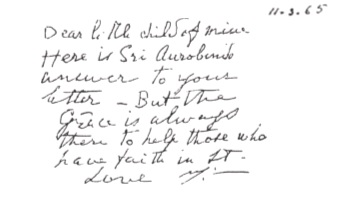 11.3.65
Dear little child of mine
Here is Sri Aurobindo
answer to your
letter – But the
Grace is always
there to help those who
have faith in It –
Love